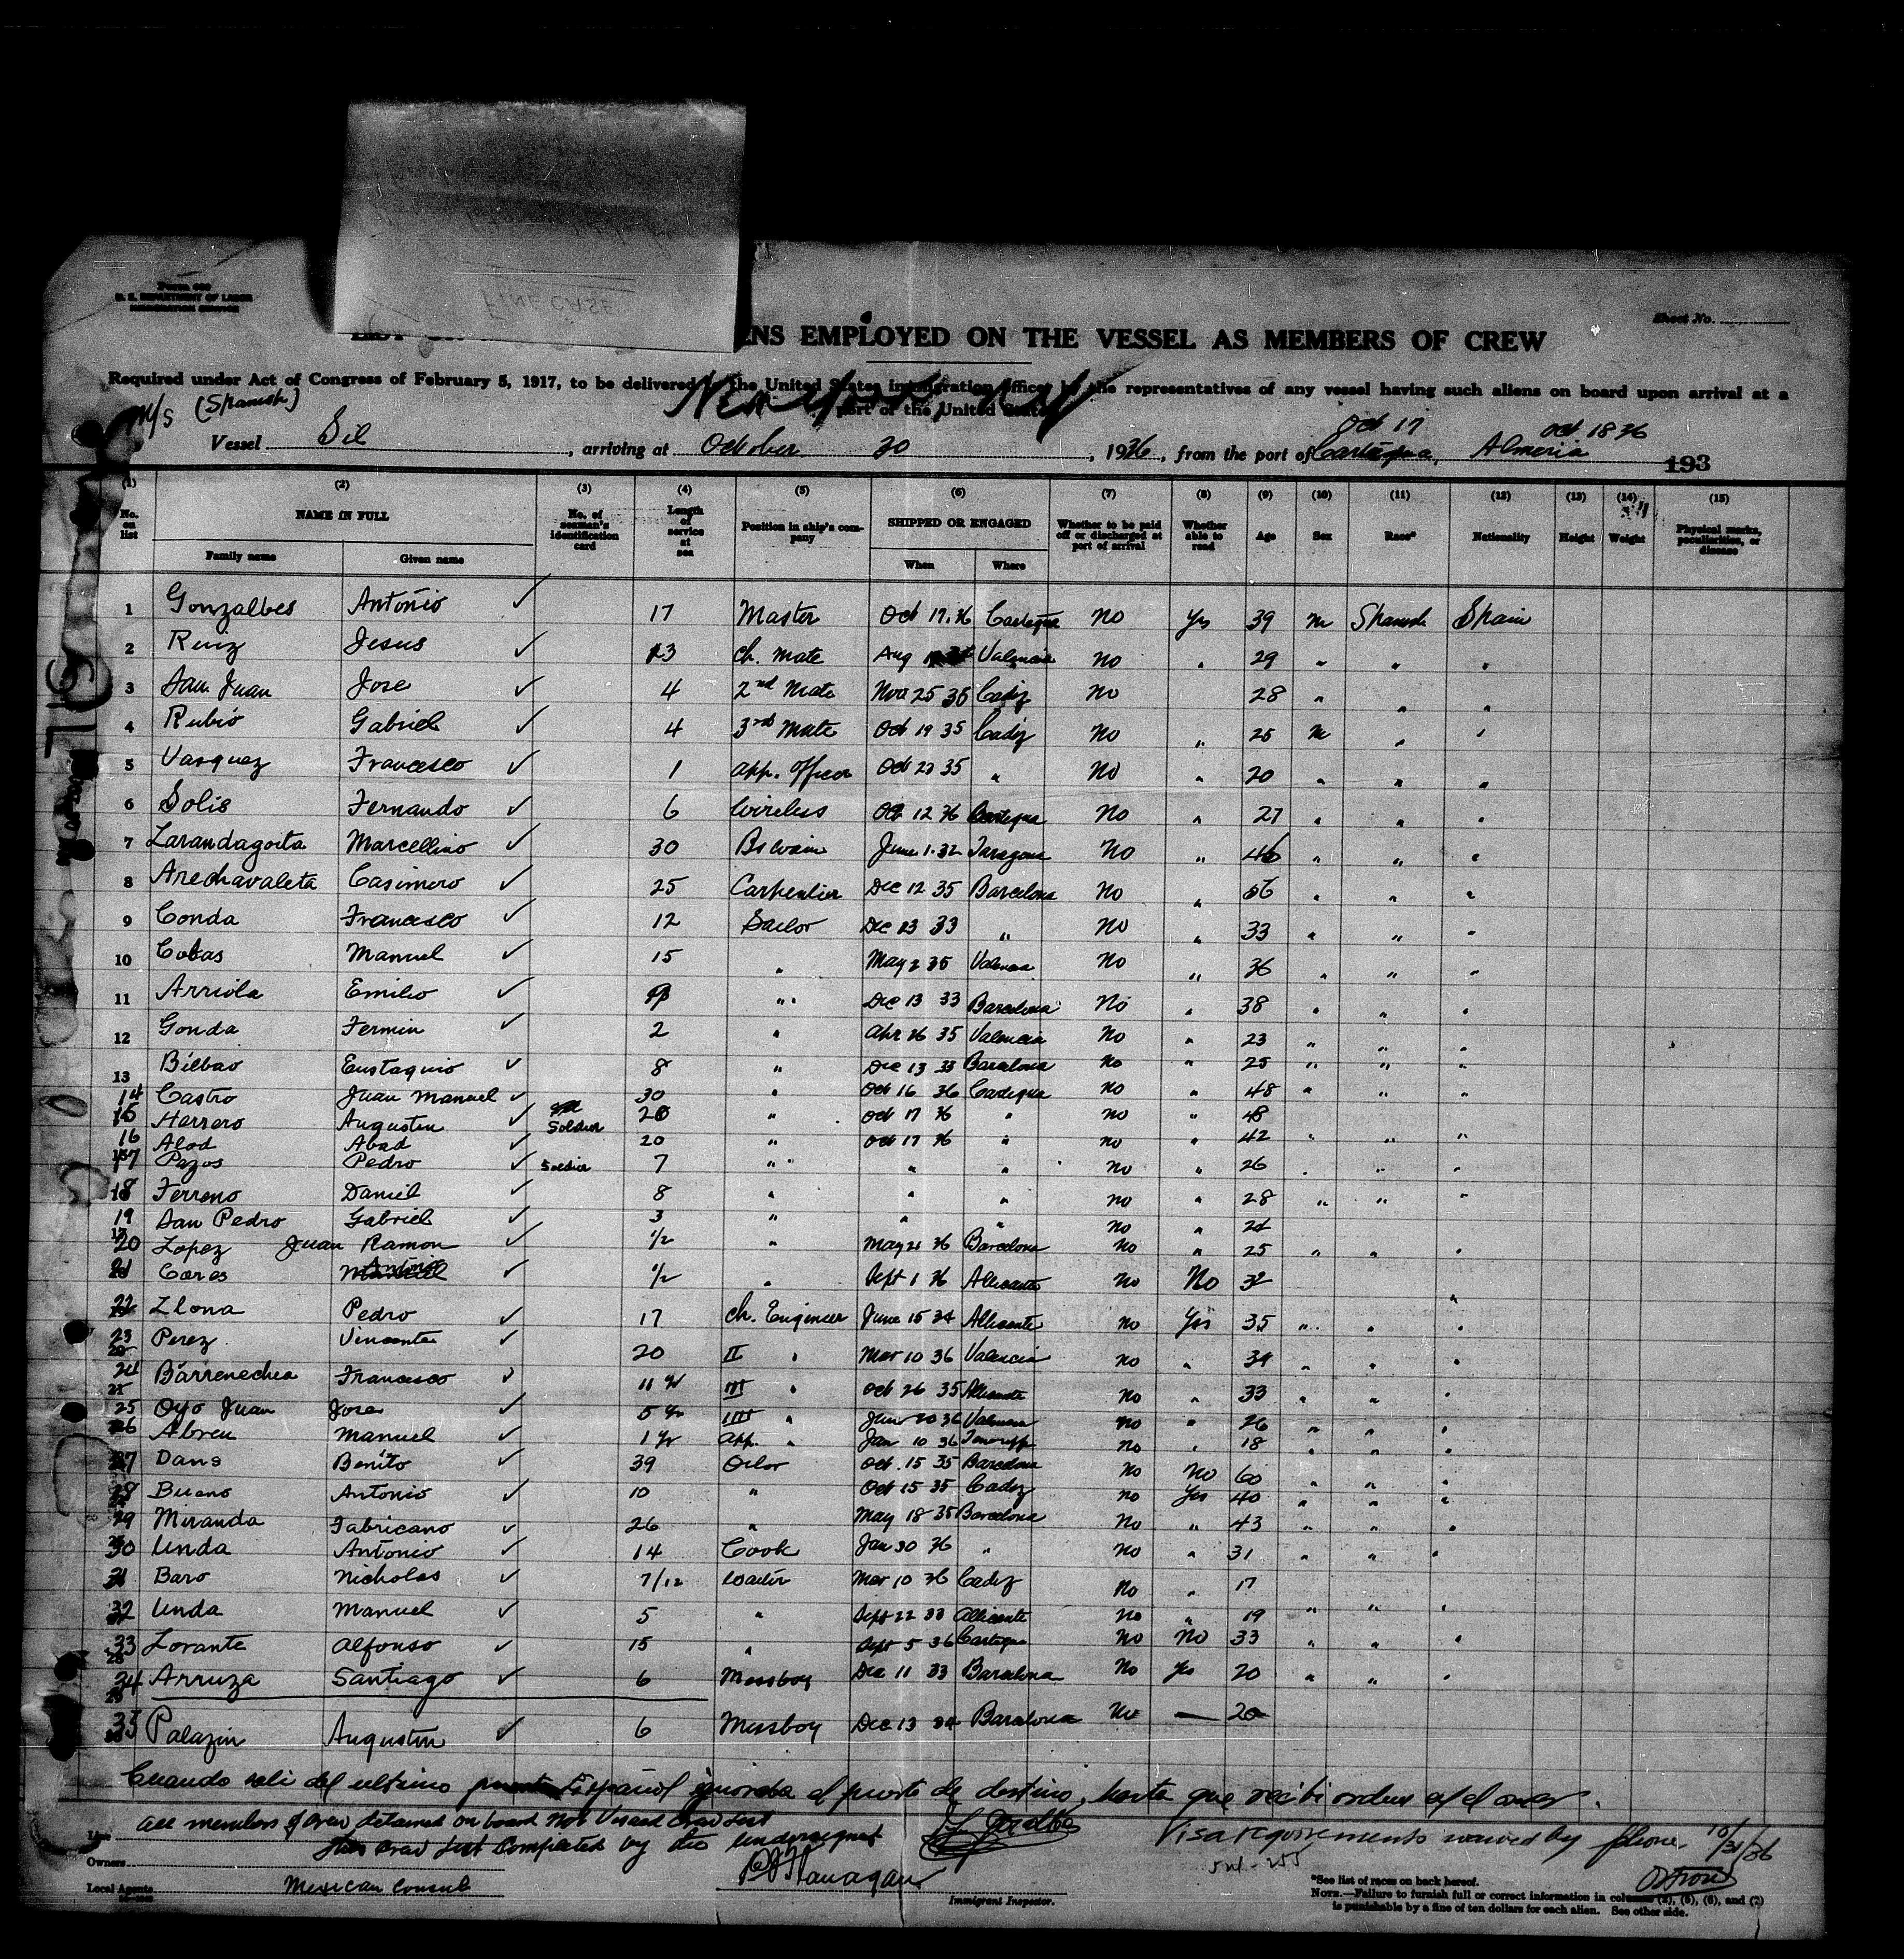 FINE CASE
U. S. DEPARTMENT OF LABOR
IMMIGRATION SERVICE
Sheet No.
ENS EMPLOYED ON THE VESSEL AS MEMBERS OF CREW
Required under Act of Congress of February 5, 1917, to be delivered the United States immigration officer by the representatives of any vessel having such aliens on board upon arrival at a
port of the United States
M/s (Spanish)
Oct 17 Oct 18 36
Vessel Sil, arriving at October 30, 1936, from the port of Cartegna, Almeria 193
(1) (2) (3) (4) (5) (6) (7) (8) (9) (10) (11) (12) (13) (14) (15)
No. on list NAME IN FULL Family name Given name No. of seaman's identification card Length of service at sea Position in ship's company SHIPPED OR ENGAGED When Where Whether to be paid off or discharged at port of arrival Whether able to read Age Sex Race* Nationality Height Weight Physical marks, peculiarities, or disease
1 Gonzalbes Antonio ✓ 17 Master Oct 17.36 Cartegna No Yes 39 M Spanish Spain
2 Ruiz Jesus ✓ 13 Ch. Mate Aug Valencia No " 29 " " "
3 San Juan Jose ✓ 4 2nd Mate Nov 25 35 Cadiz No 28 " " "
4 Rubio Gabriel ✓ 4 3rd Mate Oct 19 35 Cadiz No " 25 M " "
5 Vasquez Francesco ✓ 1 App. Officer Oct 23 35 " No " 20 " " "
6 Solis Fernando ✓ 6 Wireless Oct 12 36 Cartegna No " 27 " " "
7 Larandagoita Marcellino ✓ 30 Boswain June 1.32 Taragona No " 46 " " "
8 Arechavaleta Casimero ✓ 25 Carpentier Dec 12 35 Barcelona No " 56 " " "
9 Conda Francesco ✓ 12 Sailor Dec 23 33 " No " 33 " " "
10 Cobas Manuel ✓ 15 " May 2 35 Valencia No " 36 " " "
11 Arriola Emilio ✓ " Dec 13 33 Barcelona No " 38 " " "
12 Gonda Fermin ✓ 2 " Apr 26 35 Valencia No " 23 " " "
13 Bilbao Eustaquio ✓ 8 " Dec 13 33 Barcelona No " 25 " " "
14 Castro Juan Manuel ✓ 30 " Oct 16 36 Cartegna No " 48 " " "
15 Herrero Augusten ✓ Soldier 20 " Oct 17 36 " No " 48
16 Alod Abad ✓ 20 " Oct 17 36 " No " 42 " " "
17 Pazos Pedro ✓ Soldier 7 " " " No " 26 " " "
18 Ferreno Daniel ✓ 8 " " " No " 28 " " "
19 San Pedro Gabriel ✓ 3 " " " No " 22
20 Lopez Juan Ramon ✓ 1/2 " May 21 36 Barcelona No " 25 " " "
21 Cores Antonio ✓ 1/2 " Sept 1 36 Allicante No No 32 "
22 Llona Pedro ✓ 17 Ch. Engineer June 15 34 Allicante No Yes 35 " " "
23 Perez Vincente ✓ 20 II " Mar 10 36 Valencia No " 39 " " "
24 Barrenechea Francesco ✓ 11 yr III " Oct 26 35 Allicante No " 33 " " "
25 Oyo Juan Jose ✓ 5 yr IIII " Jun 20 36 Valencia No " 26 " " "
26 Abreu Manuel ✓ 1 yr App. " Jan 10 36 Teneriffe No " 18 " " "
27 Dans Benito ✓ 39 Oiler Oct. 15 35 Barcelona No No 60 " " "
28 Bueno Antonio ✓ 10 " Oct 15 35 Cadiz No Yes 40 " " "
29 Miranda Fabricano ✓ 26 " May 18 35 Barcelona No " 43 " " "
30 Unda Antonio ✓ 14 Cook Jan 30 36 " No " 31 " " "
31 Baro Nicholas ✓ 7/12 Waiter Mar 10 36 Cadiz No " 17
32 Unda Manuel ✓ 5 " Sept 22 33 Allicante No " 19 " " "
33 Lorante Alfonso ✓ 15 " Sept 5 36 Cartegna No No 33 " " "
34 Arruza Santiago ✓ 6 Messboy Dec 11 33 Barcelona No Yes 20 " " "
35 Palazin Augustin ✓ 6 Messboy Dec 13 34 Barcelona No — 20
Cuando sali del ultimo Español ignoraba el puerto de destino, hasta que recibi ordens
All members of crew detained on board Not Visaed Crew List
This Crew List Completed by the undersigned
Visa requirements waived by phone 10/31/36
Line
Owners
Local Agents Mexican Consul
P J Flanagan
Immigrant Inspector.
*See list of races on back hereof.
NOTE.—Failure to furnish full or correct information in columns (2), (5), (6), and (7)
is punishable by a fine of ten dollars for each alien. See other side.